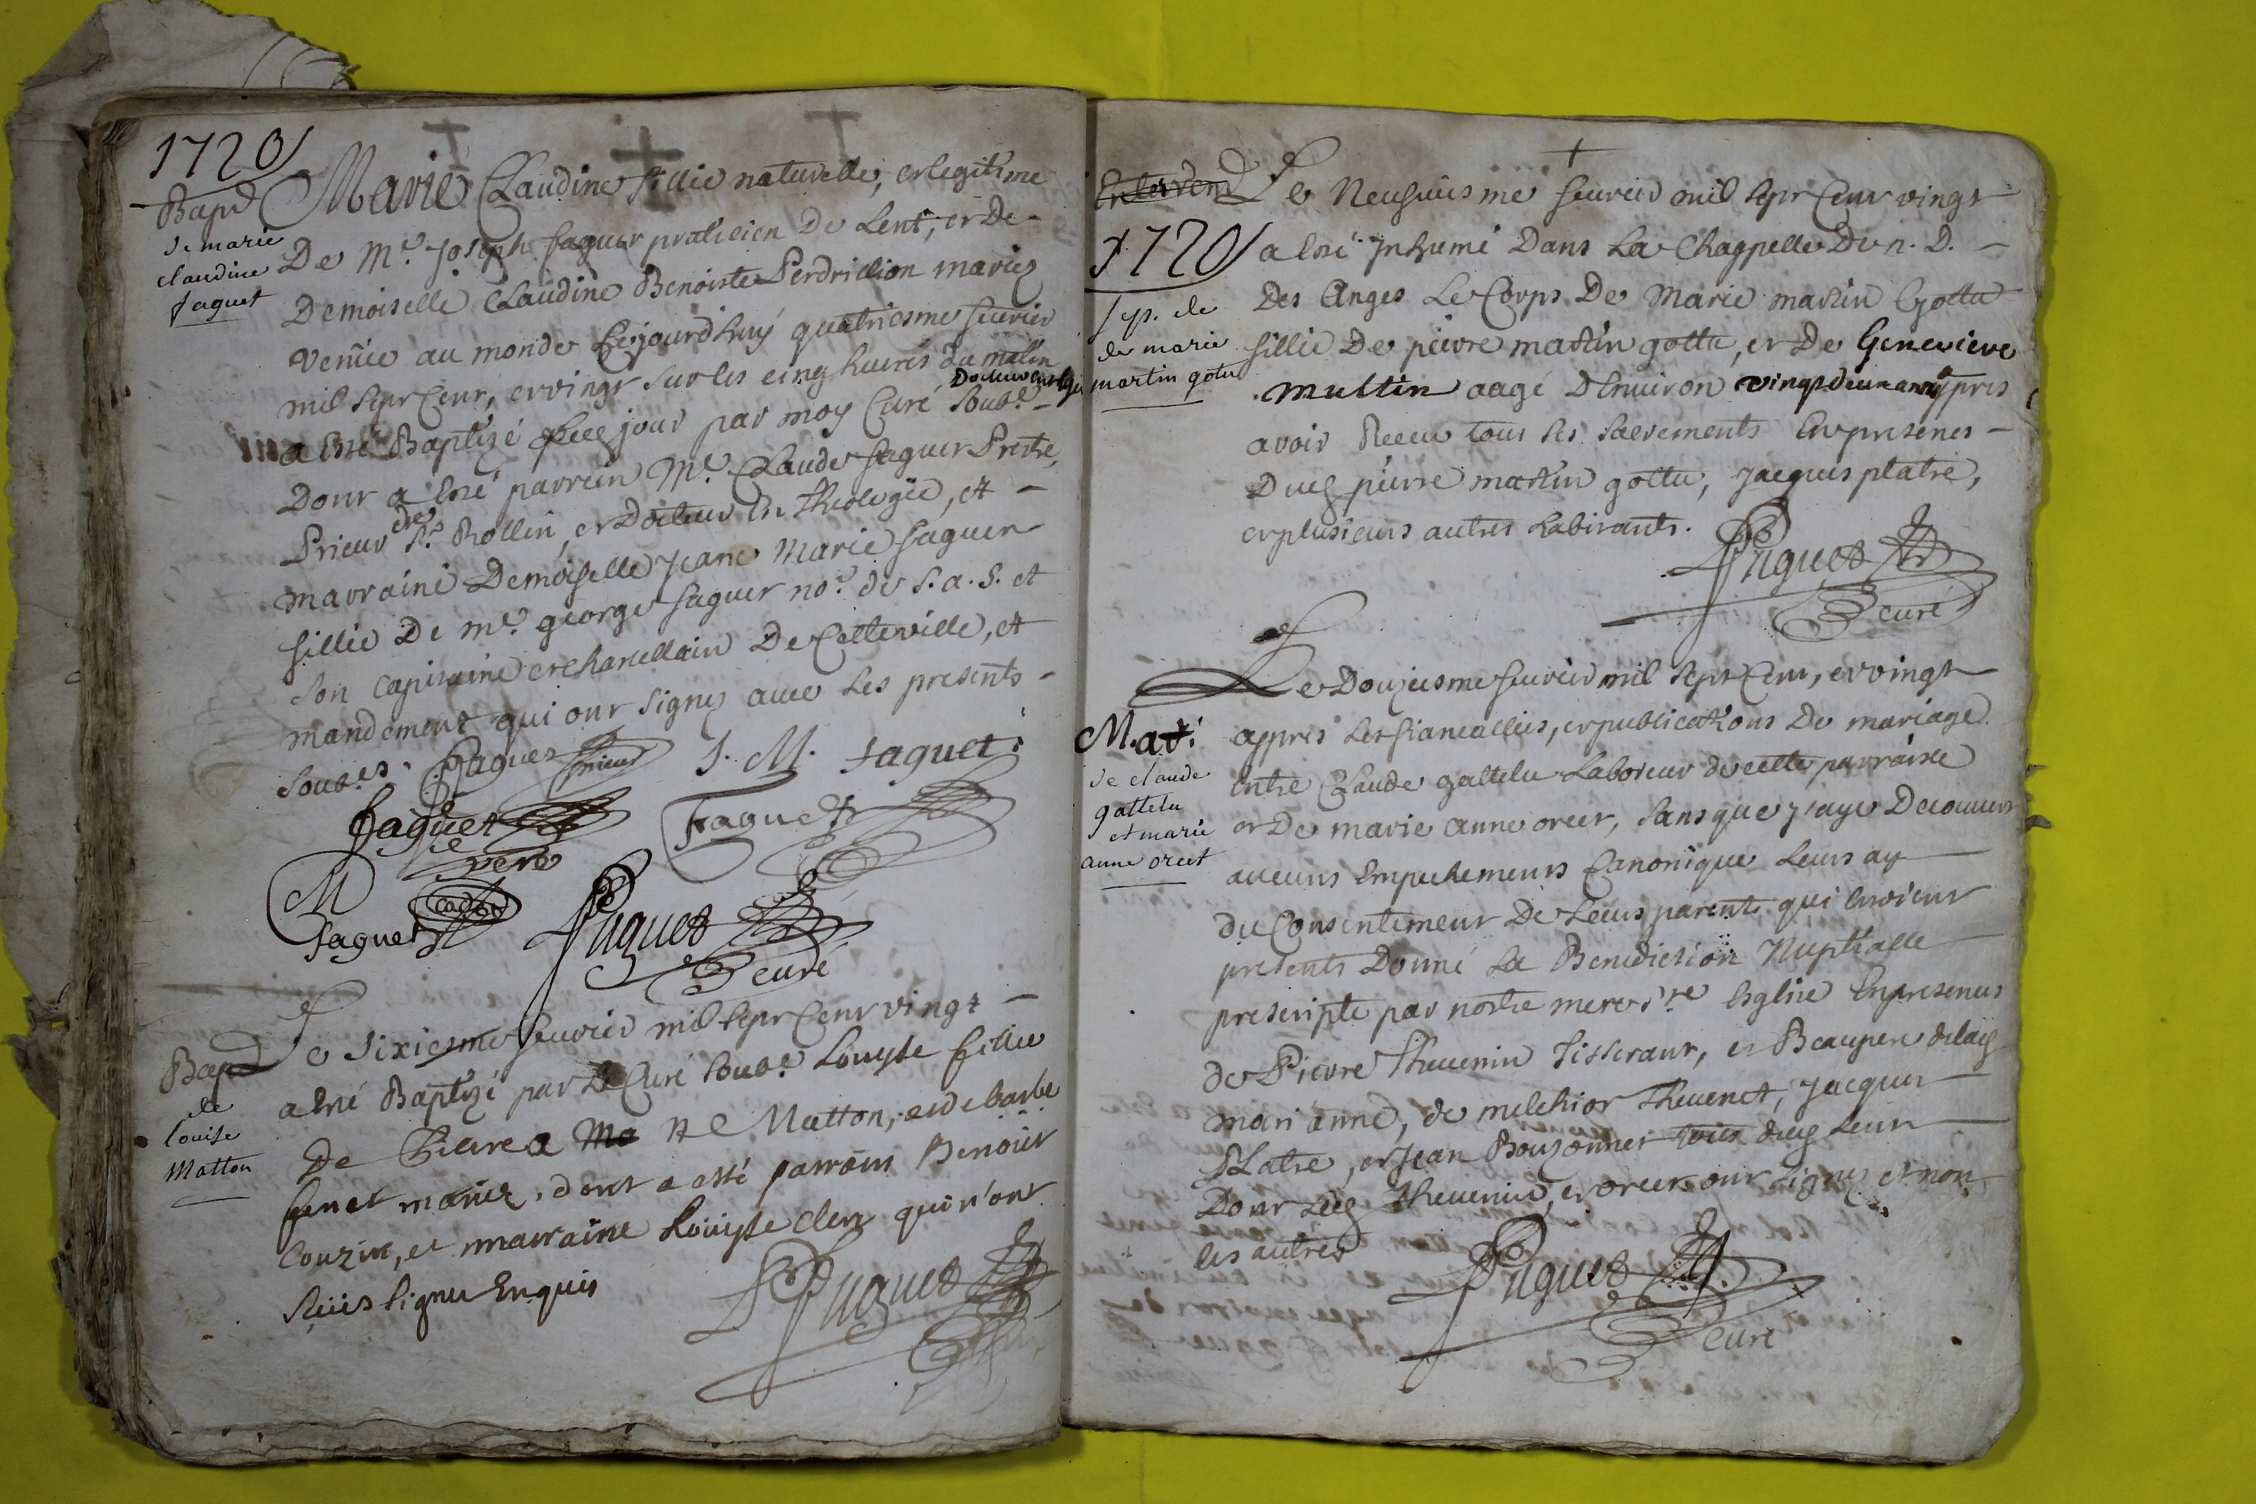 1720
Bapt
de marie
claudine
faguet
Marie Claudine fillie naturelle, et legitime
De Me. Joseph faguet praticien De Lent, et De
Demoiselle Claudine Benoiste Perdrillion mariez
venüe au monde Le jourd'huy quatriesme feuvrier
mil sept Cent, et vingt sur les cinq heures du matin
a esté Baptizé par moy Curé sousé.
Dont a esté parrein Me. Claude faguet Pretre,
Prieur de St. Rollin, et Docteur En Theologie, et
marraine Demoiselle Jeane Marie faguet
fillie De me. george faguet no.e de S. a. S. et
son capitaine et chatellain De Cetteville, et
mandement qui ont signez avec les presents
sousés.
faguet prieur
J. M. faguet
faguet
pere
faguet
M
faguet
Puguet
curé
Bapt
de
louise
Matton
Le sixiesme feuvrier mil sept Cent vingt
a esté Baptizé par le Curé sousé. Louyse fillie
De Pierre Matton, et de barbe
senet mariez, dont a esté parrain Benoist
Couzin, et marraine Louyse clerc qui n'ont
sçüs signer Enquis
Puguet
Enterrem
1720
sep. de
de marie
martin gotu
Le Neufuiesme feuvrier mil sept Cent vingt
a esté Inhumé Dans La Chappelle De n. D.
Des Anges Le Corps De Marie martin Gottu
fillie De pierre martin gottu, et De Genevieve
multin aagé D'Enuiron vingt deux ans apres
avoir Receu tous les sacrements En presence
Dudt pierre martin gottu, Jacques platre,
et plusieurs autres habitants.
Puguet
curé
Mar.
de claude
gattelu
et marie
anne orcet
Le Douziesme feuvrier mil sept Cent, et vingt
appres les fiancallies, et publications De mariage
entre Claude gattelu Laboreur de cette parroisse
et De marie anne orcet, sans que j'aye Decouvert
aucuns Empechements Canonique Leurs ay
du Consentement De Leurs parents qui Estoient
presents Donné La Benediction Nuptialle
prescripte par nostre mere Ste Esglise En presences
de Pierre Thevenin Tisserant, et Beaupere de lad
mari anne, de melchior Thevenet, Jacques
PLatre, et Jean Bouzonnet
Dont Led Thevenin, et orcet ont signez et non
les autres
Puguet
curé